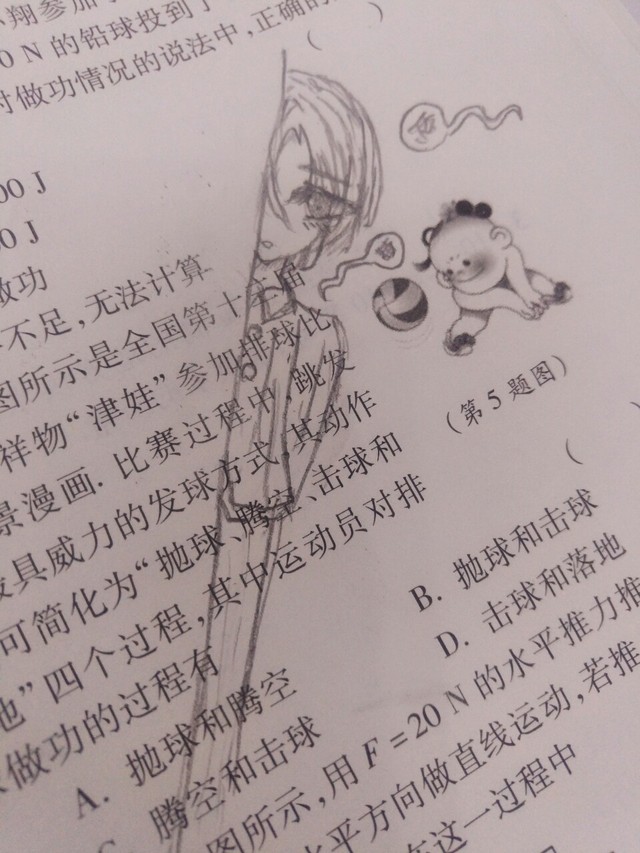 翔参加
0 N 的铅球投到了
对做功情况的说法中,正确的
(    )
00 J
0 J
做功
不足,无法计算
图所示是全国第十三届
祥物“津娃”参加排球比
景漫画. 比赛过程中,跳发
具威力的发球方式,其动作
可简化为“抛球、腾空、击球和
地”四个过程,其中运动员对排
做功的过程有
(
(第 5 题图)
A. 抛球和腾空
B. 抛球和击球
C. 腾空和击球
D. 击球和落地
图所示,用 F = 20 N 的水平推力推
水平方向做直线运动,若推
在这一过程中